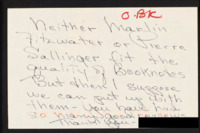 O.BK
Neither Marlin
Fitzwater or Pierre
Sallinger fit the
quality of Booknotes
But then I suppose
we can put up with
them - you have had
so many good reviews
Thank you -